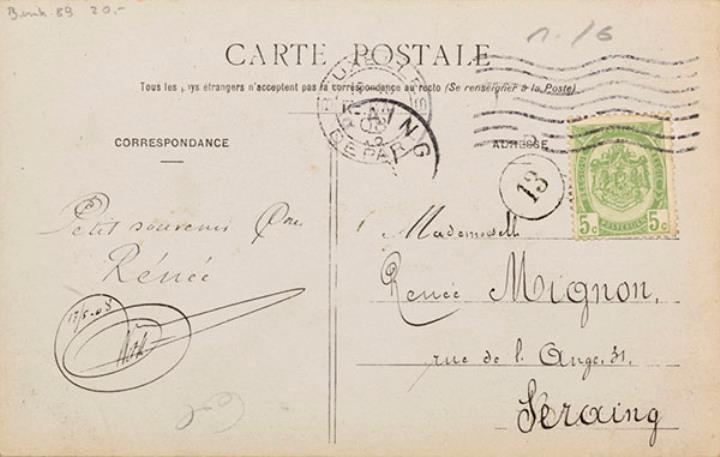 Bmk-89 20.-
n. /6
CARTE POSTALE
Tous les pays étrangers n'acceptent pas la correspondance au recto (Se renseigner à la Poste)
CORRESPONDANCE
ADRESSE
DEPART
13
5c 5c
Petit souvenir
Rénée
17/5-08
Mademoiselle
Renée Mignon,
rue de l'Ange. 31.
Seraing